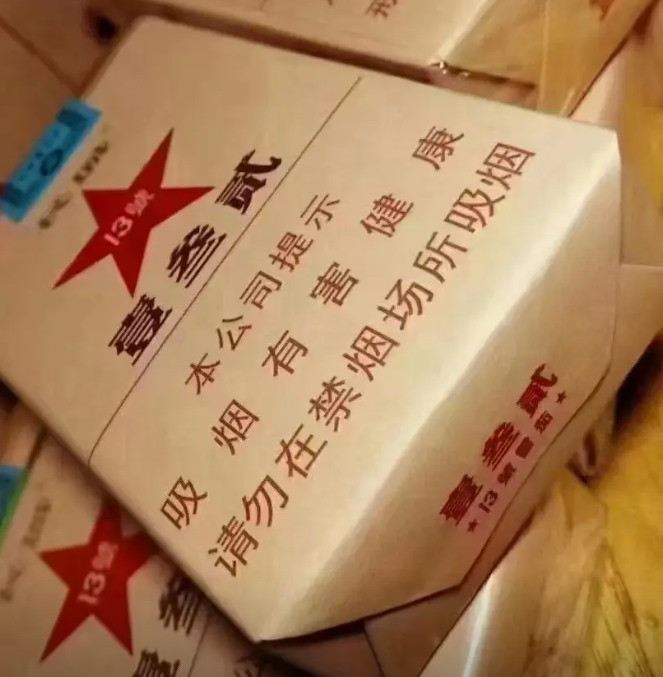 13號
壹叁贰
本公司提示
吸烟有害健康
请勿在禁烟场所吸烟
壹叁贰
13號
壹叁